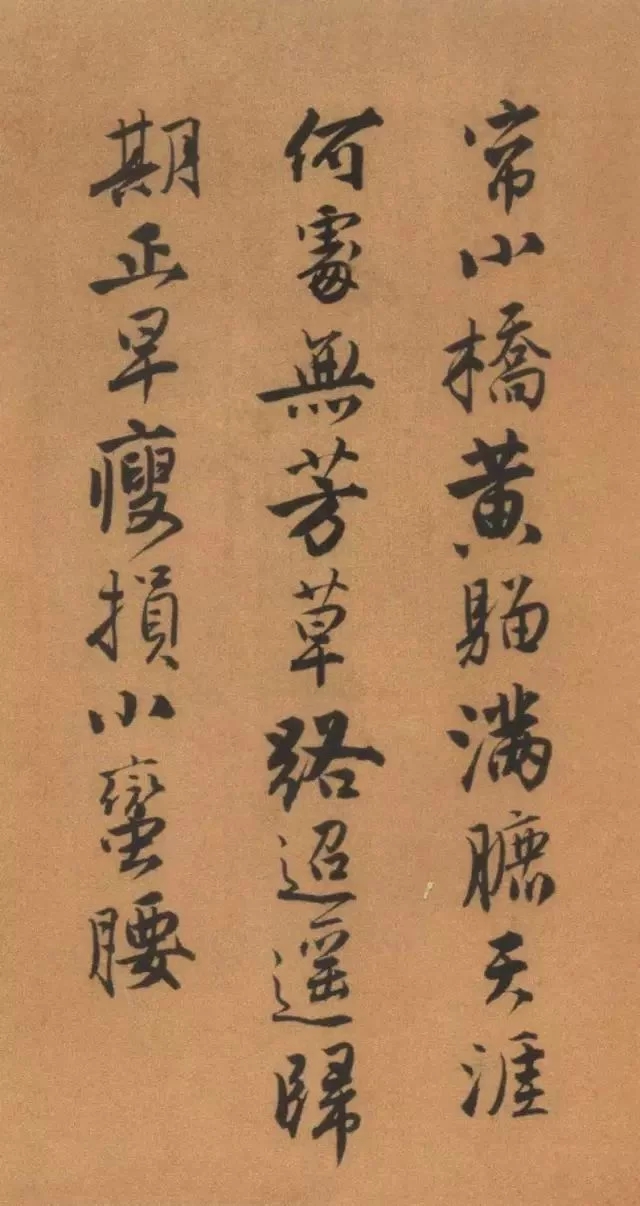 帘小橋黄满臕天涯
何處無芳草路迢遥歸
期正早瘦損小蠻腰